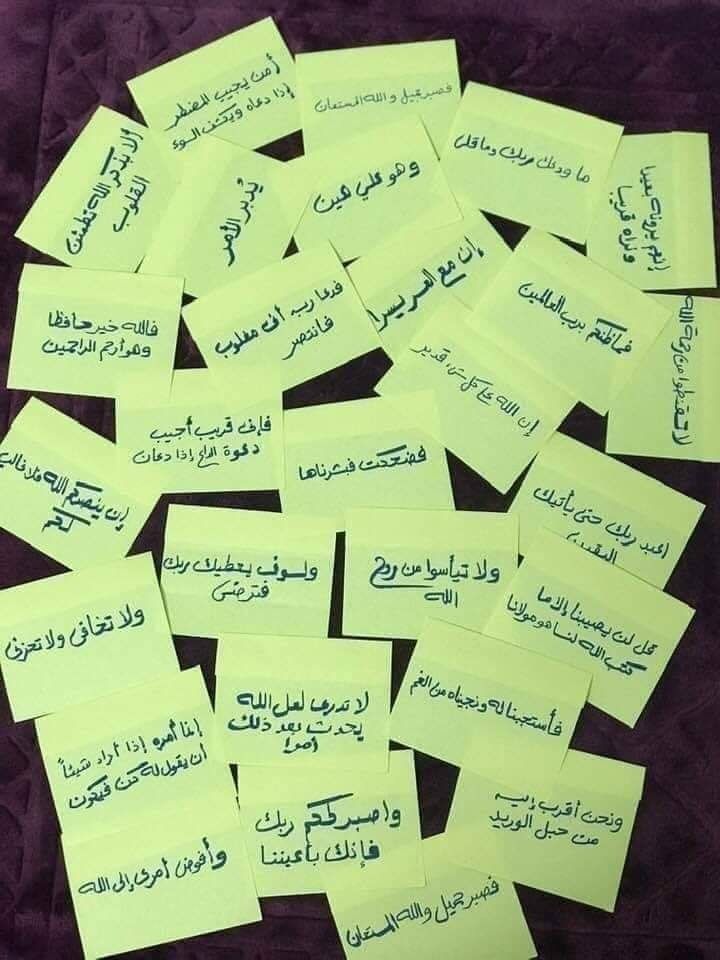 أمن يجيب المضطر
إذا دعاه ويكشف السوء
فصبر جميل والله المستعان
ما ودعك ربك وما قلى
إنهم يرونه بعيدا
ونراه قريبا
ألا بذكر الله تطمئن
القلوب
يُدبر الأمر
وهو علي هين
إن مع العسر يسرا
فما ظنكم برب العالمين
لا تقنطوا من رحمة الله
فالله خير حافظا
وهو أرحم الراحمين
فدعا ربه أنى مغلوب
فانتصر
إن الله على كل شيء قدير
فإنى قريب أجيب
دعوة الداع إذا دعان
فضحكت فبشرناها
إن ينصركم الله فلا غالب
لكم
اعبد ربك حتى يأتيك
اليقين
ولسوف يعطيك ربك
فترضى
ولا تيأسوا من روح
الله
قل لن يصيبنا إلا ما
كتب الله لنا هو مولانا
ولا تخافى ولا تحزنى
لا تدرى لعل الله
يحدث بعد ذلك
أمرا
فأستجبنا له ونجيناه من الغم
إنما أمره إذا أراد شيئاً
أن يقول له كن فيكون
واصبر لحكم ربك
فإنك بأعيننا
ونحن أقرب إليه
من حبل الوريد
وأفوض أمرى إلى الله
فصبر جميل والله المستعان